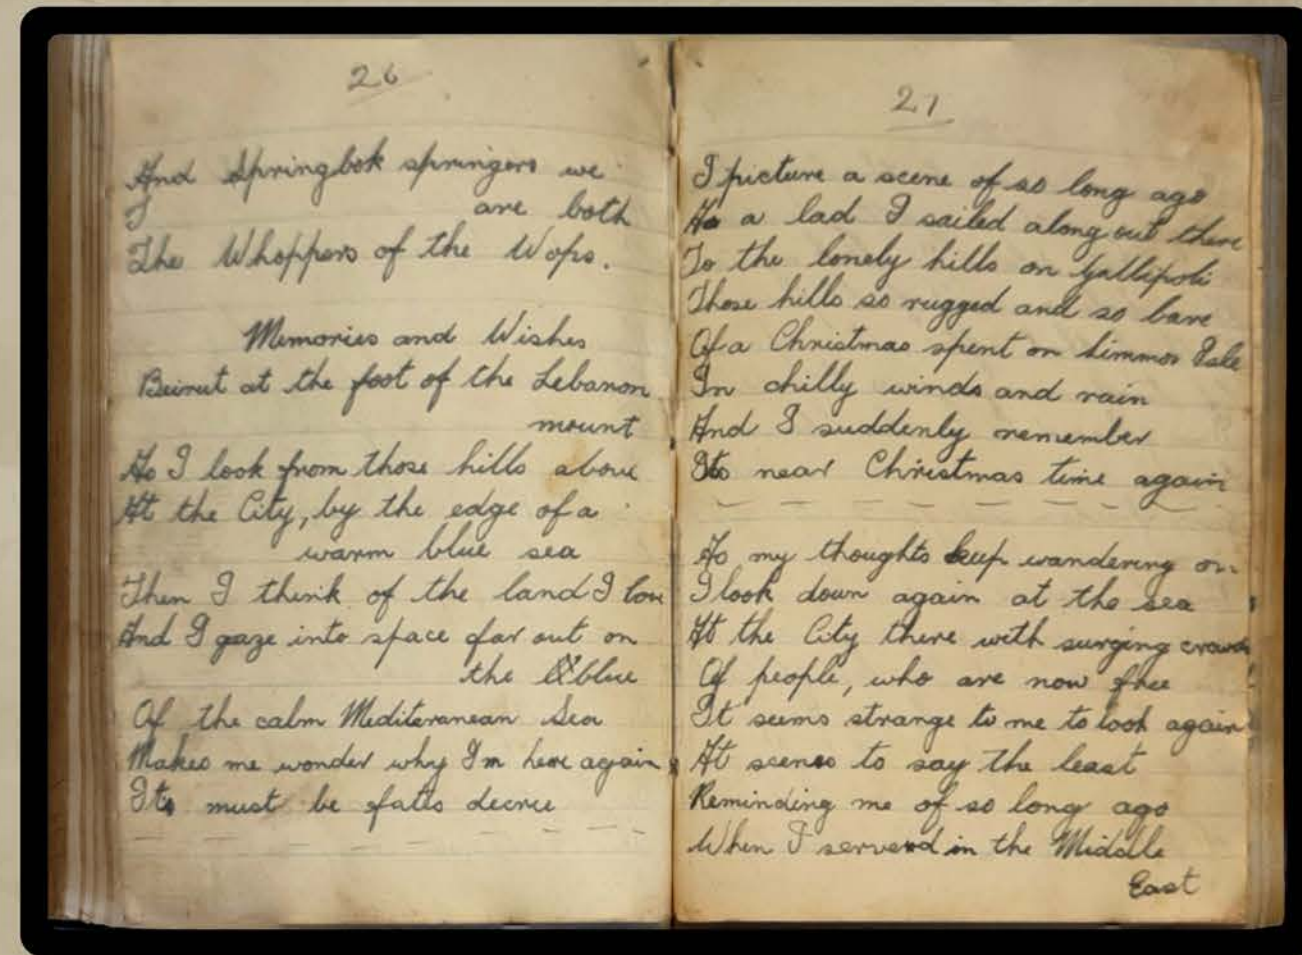 26
And Springbok springers we
are both
The Whoppers of the Wops.
Memories and Wishes
Beirut at the foot of the Lebanon
mount
As I look from those hills above
At the City, by the edge of a
warm blue sea
Then I think of the land I love
And I gaze into space far out on
the blue
Of the calm Mediteranean Sea
Makes me wonder why I'm here again
Its must be fates decree
27
I picture a scene of so long ago
As a lad I sailed along out there
To the lonely hills on Gallipoli
Those hills so rugged and so bare
Of a Christmas spent on Limmos Isle
In chilly winds and rain
And I suddenly remember
Its near Christmas time again
As my thoughts keep wandering on
I look down again at the sea
At the City there with surging crowds
Of people, who are now free
It seems strange to me to look again
At scenes to say the least
Reminding me of so long ago
When I served in the Middle
East